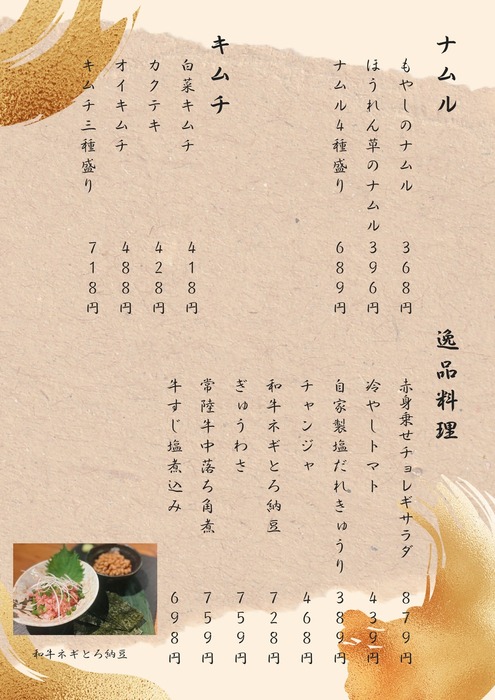 ナムル
もやしのナムル 368円
ほうれん草のナムル 396円
ナムル4種盛り 689円
キムチ
白菜キムチ 418円
カクテキ 428円
オイキムチ 488円
キムチ三種盛り 718円
逸品料理
赤身乗せチョレギサラダ 879円
冷やしトマト 439円
自家製塩だれきゅうり 389円
チャンジャ 468円
和牛ネギとろ納豆 728円
ぎゅうわさ 759円
常陸牛中落ち角煮 759円
牛すじ塩煮込み 698円
和牛ネギとろ納豆